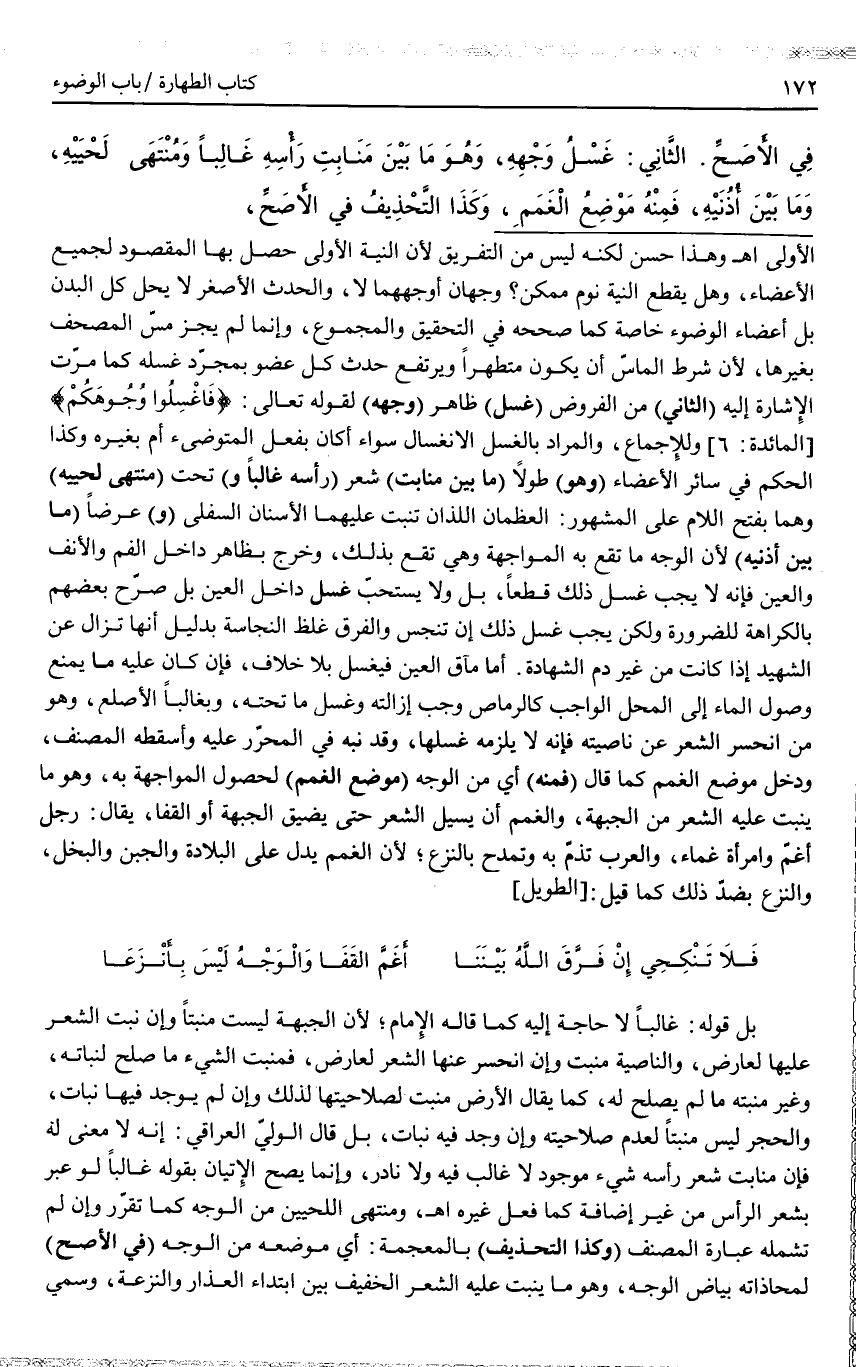 ١٧٢ كتاب الطهارة / باب الوضوء
فِي الأَصَحِّ. الثَّانِي: غَسْلُ وَجْهِهِ، وَهُوَ مَا بَيْنَ مَنَابِتِ رَأْسِهِ غَالِباً وَمُنْتَهَى لَحْيَيْهِ،
وَمَا بَيْنَ أُذُنَيْهِ، فَمِنْهُ مَوْضِعُ الْغَمَمِ، وَكَذَا التَّحْذِيفُ في الأَصَحِّ،
الأولى اهـ وهذا حسن لكنه ليس من التفريق لأن النية الأولى حصل بها المقصود لجميع
الأعضاء، وهل يقطع النية نوم ممكن؟ وجهان أوجههما لا، والحدث الأصغر لا يحل كل البدن
بل أعضاء الوضوء خاصة كما صححه في التحقيق والمجموع، وإنما لم يجز مسّ المصحف
بغيرها، لأن شرط الماسّ أن يكون متطهراً ويرتفع حدث كل عضو بمجرّد غسله كما مرّت
الإشارة إليه (الثاني) من الفروض (غسل) ظاهر (وجهه) لقوله تعالى: ﴿فَاغْسِلُوا وُجُوهَكُمْ﴾
[المائدة: ٦] وللإجماع، والمراد بالغسل الانغسال سواء أكان بفعل المتوضىء أم بغيره وكذا
الحكم في سائر الأعضاء (وهو) طولًا (ما بين منابت) شعر (رأسه غالباً و) تحت (منتهى لحييه)
وهما بفتح اللام على المشهور: العظمان اللذان تنبت عليهما الأسنان السفلى (و) عرضاً (ما
بين أذنيه) لأن الوجه ما تقع به المواجهة وهي تقع بذلك، وخرج بظاهر داخل الفم والأنف
والعين فإنه لا يجب غسل ذلك قطعاً، بل ولا يستحبّ غسل داخل العين بل صرّح بعضهم
بالكراهة للضرورة ولكن يجب غسل ذلك إن تنجس والفرق غلظ النجاسة بدليل أنها تزال عن
الشهيد إذا كانت من غير دم الشهادة. أما مآق العين فيغسل بلا خلاف، فإن كان عليه ما يمنع
وصول الماء إلى المحل الواجب كالرماص وجب إزالته وغسل ما تحته، وبغالباً الأصلع، وهو
من انحسر الشعر عن ناصيته فإنه لا يلزمه غسلها، وقد نبه في المحرّر عليه وأسقطه المصنف،
ودخل موضع الغمم كما قال (فمنه) أي من الوجه (موضع الغمم) لحصول المواجهة به، وهو ما
ينبت عليه الشعر من الجبهة، والغمم أن يسيل الشعر حتى يضيق الجبهة أو القفا، يقال: رجل
أغمّ وامرأة غماء، والعرب تذمّ به وتمدح بالنزع؛ لأن الغمم يدل على البلادة والجبن والبخل،
والنزع بضدّ ذلك كما قيل:[الطويل]
فَلاَ تَنْكِحِي إِنْ فَرَّقَ اللَّهُ بَيْنَنَا أَغَمَّ القَفَا وَالْوَجْهُ لَيْسَ بِأَنْزَعَا
بل قوله: غالباً لا حاجة إليه كما قاله الإمام؛ لأن الجبهة ليست منبتاً وإن نبت الشعر
عليها لعارض، والناصية منبت وإن انحسر عنها الشعر لعارض، فمنبت الشيء ما صلح لنباته،
وغير منبته ما لم يصلح له، كما يقال الأرض منبت لصلاحيتها لذلك وإن لم يوجد فيها نبات،
والحجر ليس منبتاً لعدم صلاحيته وإن وجد فيه نبات، بل قال الوليّ العراقي: إنه لا معنى له
فإن منابت شعر رأسه شيء موجود لا غالب فيه ولا نادر، وإنما يصح الإتيان بقوله غالباً لو عبر
بشعر الرأس من غير إضافة كما فعل غيره اهـ، ومنتهى اللحيين من الوجه كما تقرّر وإن لم
تشمله عبارة المصنف (وكذا التحذيف) بالمعجمة: أي موضعه من الوجه (في الأصح)
لمحاذاته بياض الوجه، وهو ما ينبت عليه الشعر الخفيف بين ابتداء العذار والنزعة، وسمي